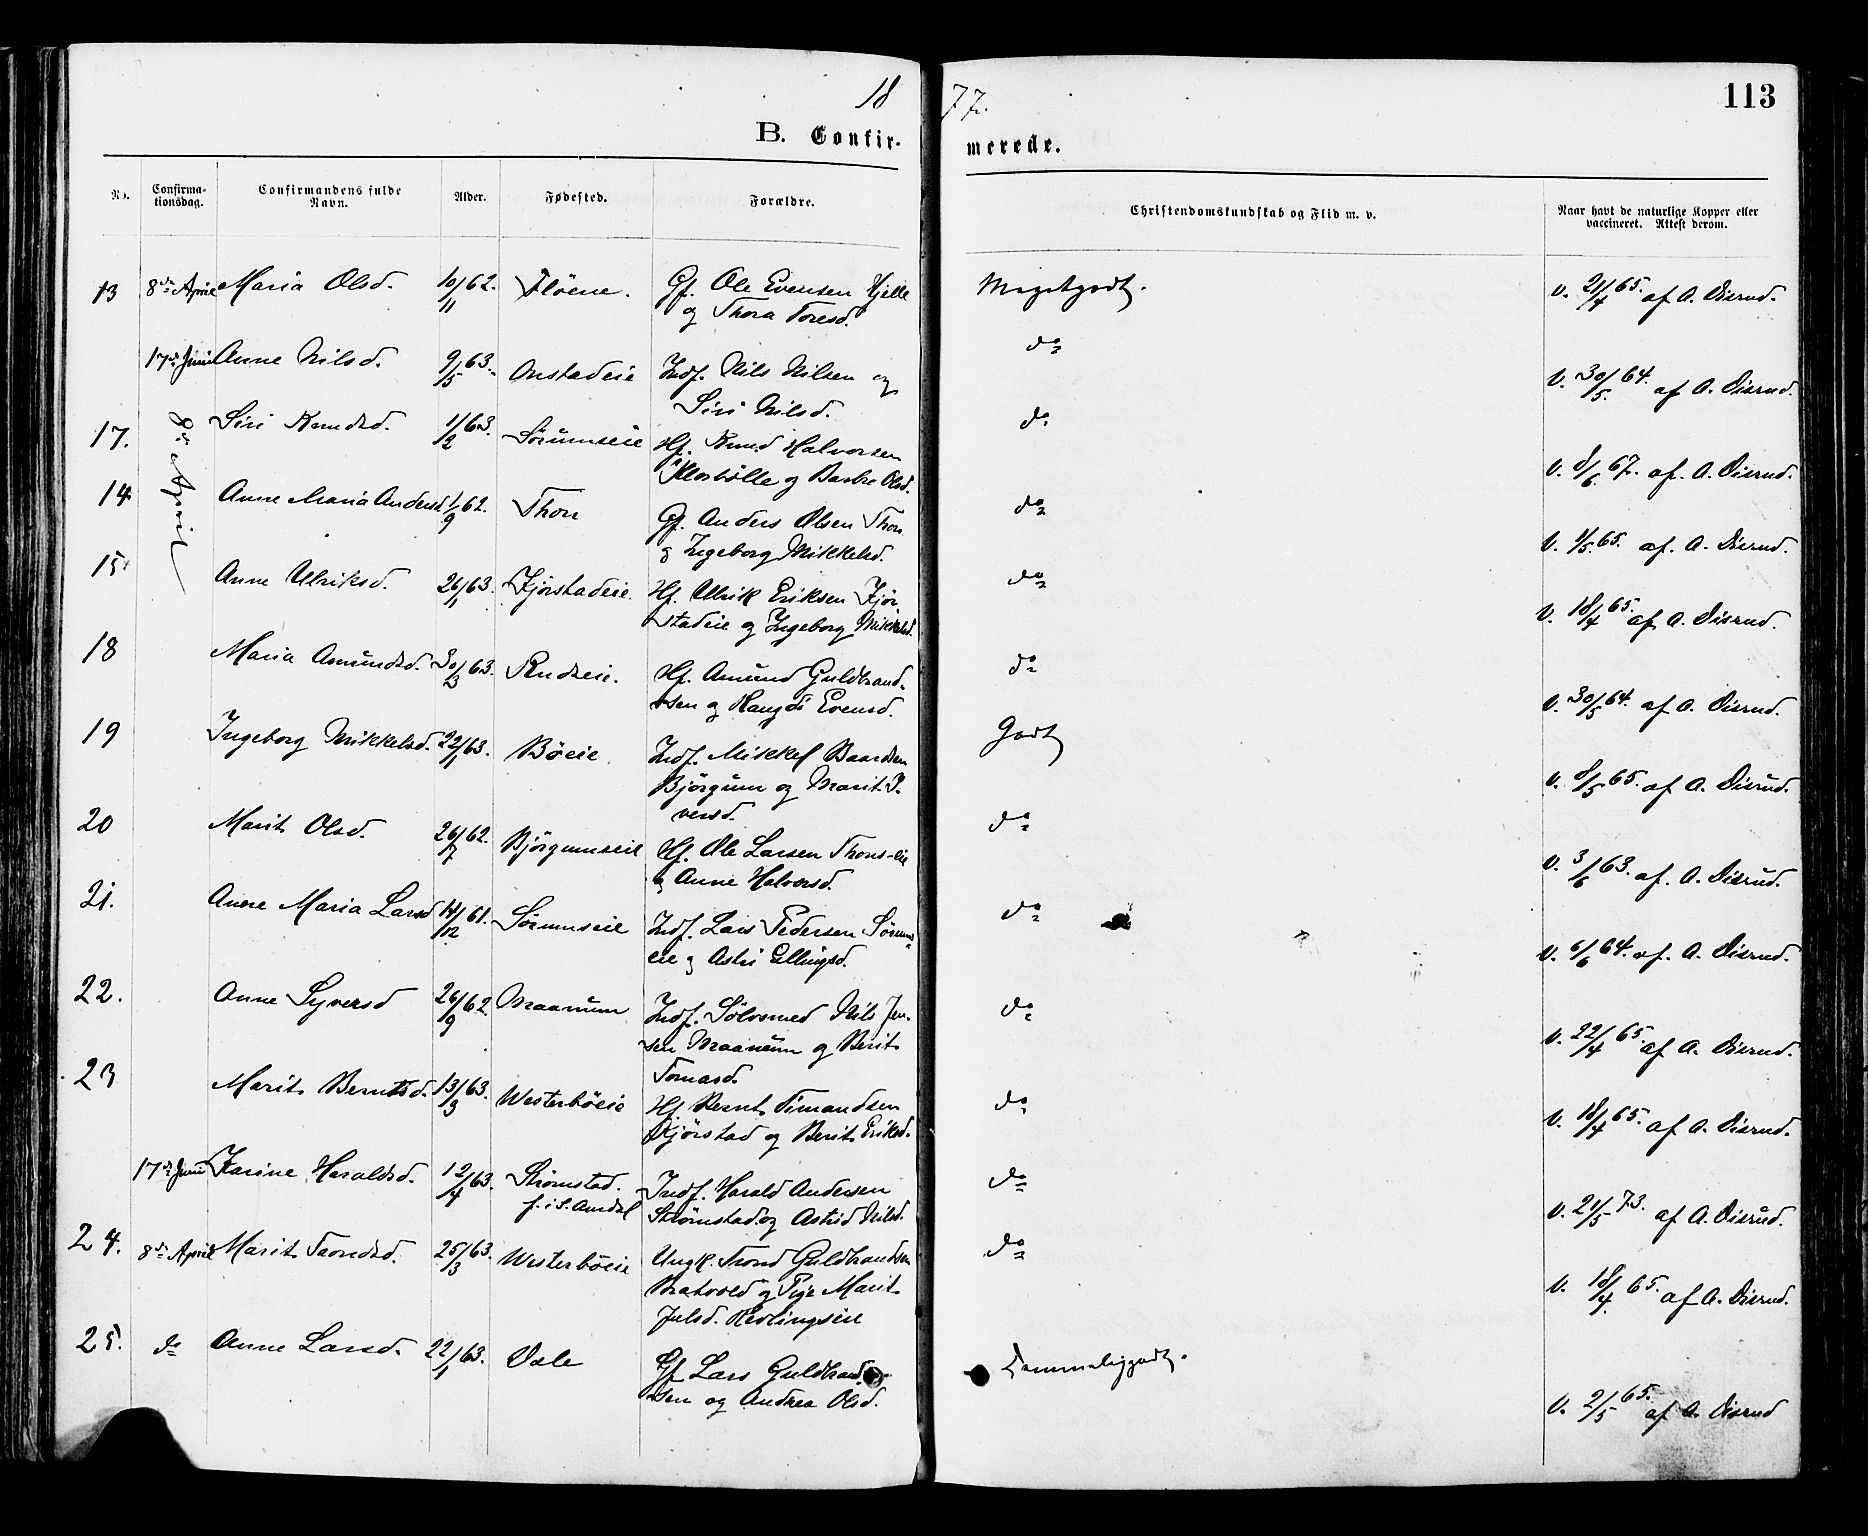 18
77.
113
B. Confir-
merede.
No.
Confirma-
tionsdag.
Confirmandens fulde
Navn.
Alder.
Fødested.
Forældre.
Christendomskundskab og Flid m. v.
Naar havt de naturlige Kopper eller
vaccineret. Attest derom.
13 8de April Maria Olsd. 10/11 62. Fløene. Gf. Ole Evensen Hjelle
og Thora Toresd.
Megetgodt. v. 21/4 65. af A. Disrud.
17de Juni Anne Nilsd. 9/5 63. Onstadeie Indf. Nils Nilsen og
Siri Nilsd.
do v. 30/5. 64. af A. Disrud.
17. 8de April Siri Knudsd. 1/2 63. Sørumseie Hf. Knud Halvorsen
Klosbølle og Barbro Olsd.
do v. 8/6 67. af. A. Disrud.
14 Anne Maria Andersd 1/9 62. Thon Gf. Anders Olsen Thon
og Ingeborg Mikkelsd.
do v. 1/5. 65. af. A. Disrud.
15. Anne Ulriksd. 26/1 63. Kjørstadeie. Hf. Ulrik Eriksen Kjør
stadeie og Ingeborg Mikkelsd.
do v. 18/4 65. af A. Disrud.
18 Maria Amundsd. 30/3 63. Rudseie. Hf. Amund Guldbrand-
sen og Rangdi Evensd.
do v. 30/5 64. af A. Disrud.
19 Ingeborg Mikkelsd. 22/1 63. Bøeie Indf. Mikkel Baardsen
Bjørgum og Marit
versd.
Godt v. 8/5 65. af A. Disrud.
20 Marit Olsd. 26/7 62. Bjørgumseie Hf. Ole Larsen Thons-eie
og Anne Halvorsd.
do v. 3/6 63. af. A. Disrud.
21. Anne Maria Larsd 14/12 61. Sørumseie Indf. Lars Pedersen Sørums-
eie og Astri Ellingsd.
do v. 6/6 64. af. A. Disrud.
22. Anne Syversd 26/9 62 Maanum Indf. Sølvsmed Nils Jen-
sen Maanum og Berit
Tomasd.
do v. 22/4 65. af A. Disrud.
23 Marit Berntsd. 13/3 63. Westerbøeie Hf. Bernt Simandsen
Kjørstad og Berit Eriksd.
do v. 18/4 65. af A. Disrud.
17de Juni Karine Haraldsd. 12/4 63. Strømstad. Indf. Harald Andersen
f. i S. Aurdal Strømstad og Astrid Nilsd.
do v. 21/5 73. af A. Disrud.
24. 8de April Marit Trondsd. 25/3 63. Westerbøeie Ungk. Trond Guldbrandsen
Bratvold og Pige Marit
Julsd. Kevlingseie
do v. 18/4. 65. af A. Disrud.
25. do Anne Larsd. 22/1 63. Vale Gf Lars Guldbrand
sen og Andrea Olsd.
Temmeliggodt. v. 2/5 65. af A. Disrud